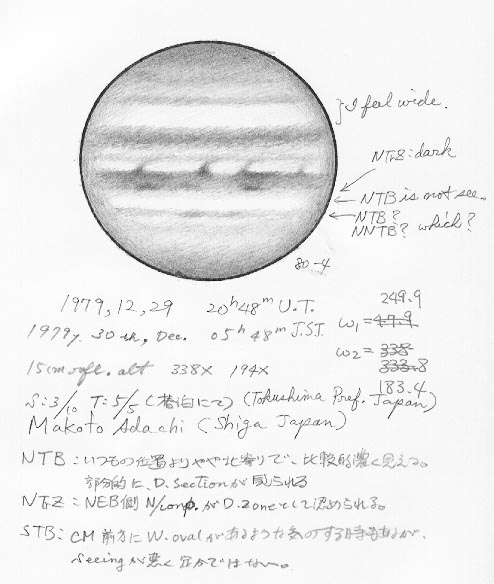 I feel wide.
NTrZ: dark
NTB is not see.
NTB?
NNTB? which?
80-4
1979, 12, 29 20h 48m U.T.
249.9
ω1 = 47.9
1979y. 30th, Dec. 05h 48m J.S.T.
ω2 = 338
333.8
15cm refl. alt 338x 194x
183.4
S: 3/10 T: 5/5 (にて) (Tokushima Pref. Japan)
Makoto Adachi (Shiga Japan)
NTB: いつもの位置よりやや北寄りで、比較的濃く見える。
部分的に、D. Sectionが見られる
NTrZ: NEB側 N/Comp.がD. Zoneとして認められる。
STB: CM前方にW. ovalがあるような気のする時もあるが、
Seeingが悪く定かではない。